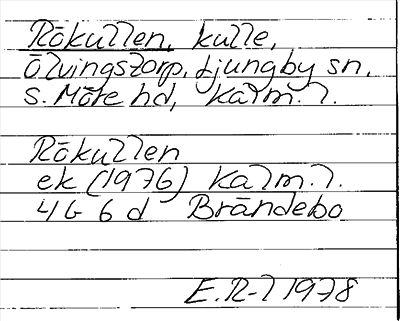 Rökullen, kulle,
Ölvingstorp, Ljungby sn,
S. Möre hd, Kalm. l.
Rökullen
ek (1976) Kalm. l.
4 G 6 d Brändebo
E. R-l 1978